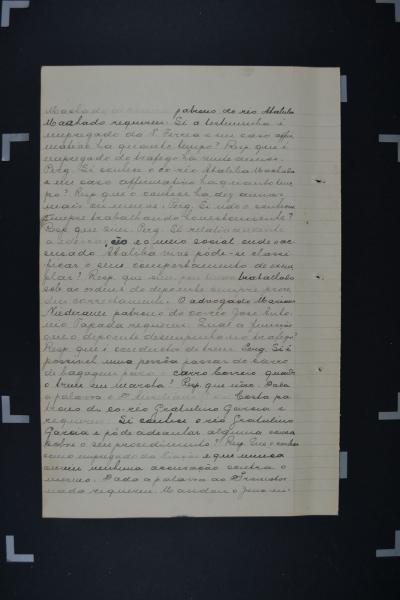 Machado patrono do réo Ataliba
Machado requereu: Si a testemunha é
empregado da V. Ferrea e em caso affir
mativo ha quanto tempo? Resp. que é
empregado do trafego ha annos.
Perg. Si conhece o co-réo Ataliba Machado
e em caso affirmativo ha quanto tem
po? Resp. que o conhece ha dez annos
mais ou menos. Perg. Si o conhece
sempre trabalhando
Resp. que sim. Perg. Si relativamente
a ção e o meio social onde o ac
cusado Ataliba vive pode-se classi
ficar o seu comportamento de exem
plar? Resp. que trabalhou
sob as ordens do depoente sempre proce
deu correctamente. O advogado
Niederauer patrono do co-réo José Anto
nio requereu: Qual a funcção
que o depoente desempenha no trafego?
Resp. que é conductor de trem. Perg. Si é
possivel uma pessôa passar do carro
de bagagem para o carro Correio quando
o trem em marcha? Resp. que não. Dada
a palavra o Dr. Costa pa
trono do co-réo Gratulino Garcia e
requereu: Si conhece o réo Gratulino
Garcia e póde adeantar alguma cousa
sobre o seu procedimento? Resp. que o conhece
como empregado da Viação e que nunca
ouviu nenhuma accusação contra o
mesmo. Dada a palavra ao Promotor
nada requereu. Mandou o